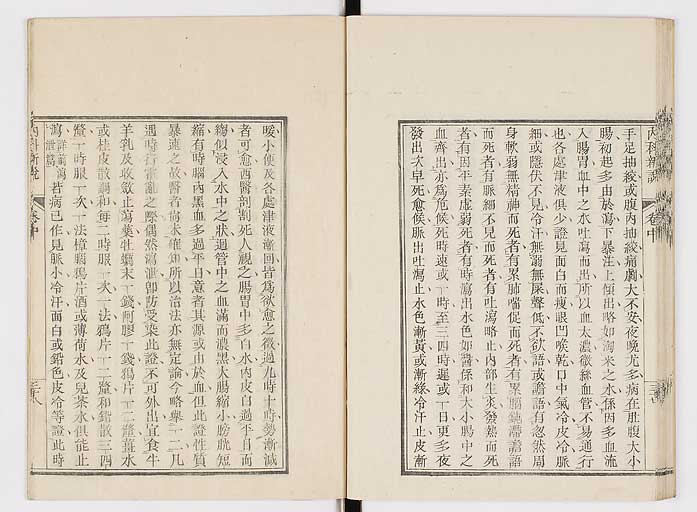 內科新說
卷中
手足抽絞或腹內抽絞痛劇大不安夜晚尤多病在肚腹大小
腸初起多由於瀉下暴注上傾出略如淘米之水係因多血流
入腸胃血中之水吐瀉而出所以血太濃微絲血管不易通行
也各處津液俱少證見面白而瘦眼凹喉乾口中氣冷皮冷脈
細或隱伏不見冷汗無溺無屎聲低不欲語或譫語有忽然周
身軟弱無精神而死者有累肺喘促而死者有累腦譫語
而死者有脈細不見而死者有吐瀉略止內部生炎發熱而死
者有因平素虛弱死者有時瀉出水色如醬係和大小腸中之
血齊出亦為危候死時速或一時至三四時遲或一日更多夜
發出次早死愈候脈出吐瀉止水色漸黃或漸綠冷汗止皮漸
暖小便及各處津液漸回皆為欲愈之徵過九時十時勢漸減
者可愈西醫剖割死人視之腸胃中多白水內皮白過平日而
縐似浸入水中之狀迴管中之血滿而濃黑大腸縮小膀胱短
縮有時腦內黑血多過平日意者其源或由於血但此證性質
暴速之故醫者尚未確知所以治法亦無定論今略舉一二凡
遇時行霍亂之際偶然瀉泄卽防受染此證不可外出宜食牛
羊乳及收斂止瀉藥牡蠣末一錢阿膠一錢鴉片十二釐薑水
或桂皮散調和每二時服一次一法鴉片一二釐和鉛散三四
釐一時服一次一法樟腦鴉片酒或薄荷水及兒茶水俱能止
瀉詳霍瀉泄篇若病已作見脈小冷汗面白或鉛色皮冷等證此時
內科新說
卷中